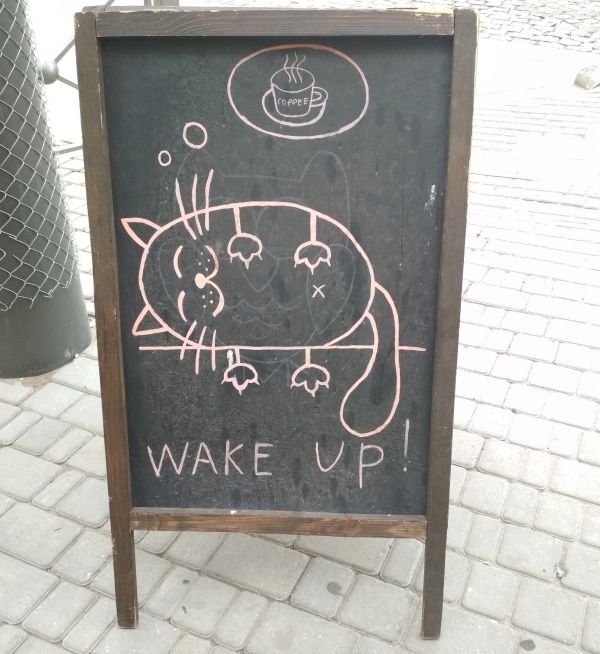 COFFEE
WAKE UP!